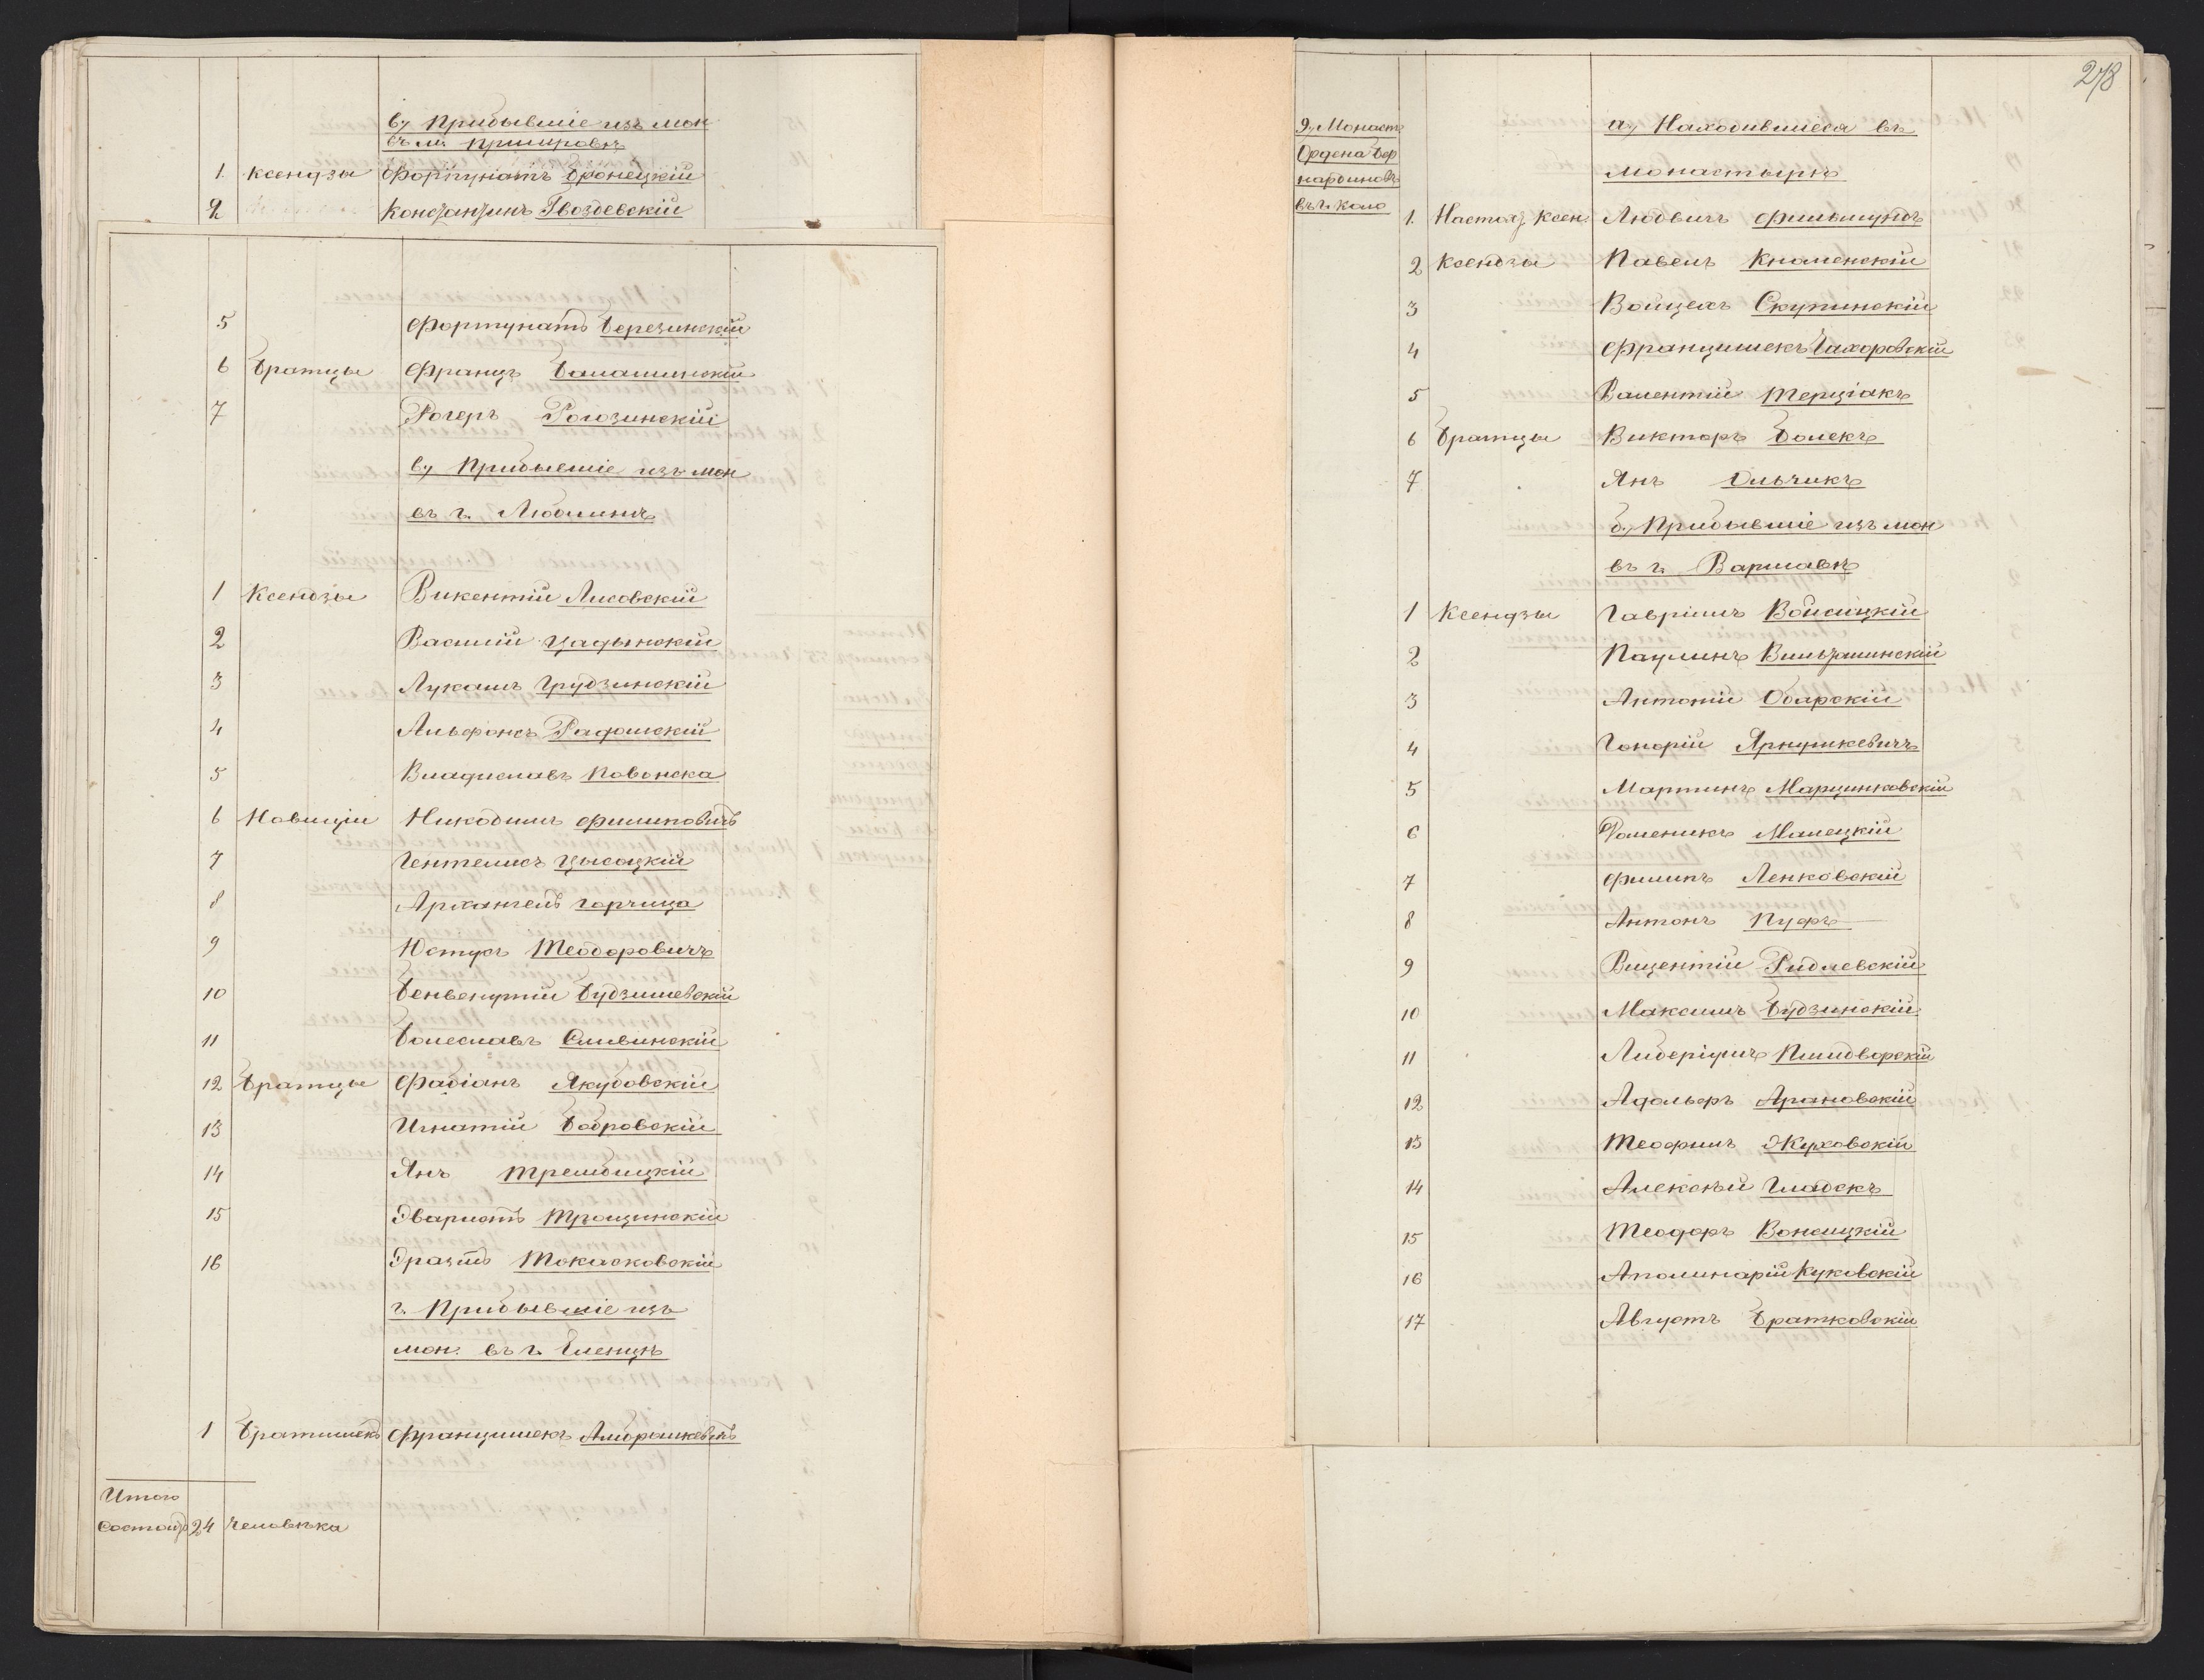 в, Прибывшіе изъ мон
въ м. Пршировѣ
1. Ксендзы Фортунатъ Бронецкій
2 Константинъ Гвоздевскій
5 Фортунатъ Березинскій
6 Братцы Францъ Балашинскій
7 Рогеръ Рогозинскій
в, Прибывшіе изъ мон
въ г. Люблинѣ
1 Ксендзы Викентій Лисовскій
2 Василій Цадынскій
3 Лукашъ Грудзинскій
4 Альфонсъ Радомскій
5 Владиславъ Повонска
6 Новиціи Никодимъ Филиповичъ
7 Гентелисъ Цысоцкій
8 Архангелъ Горчица
9 Юстусъ Теодоровичъ
10 Бенвенутій Будзишевскій
11 Болеславъ Сливинскій
12 Братцы Фабіанъ Якубовскій
13 Игнатій Бобровскій
14 Янъ Трембицкій
15 Эваристъ Трощинскій
16 Эразмъ Токасковскій
г. Прибывшіе изъ
мон. въ г. Бленцѣ
1 Братишекъ Францишекъ Амброшкевичъ
Итого
состоитъ 24 человѣка
278
9, Монаст
Ордена Бер
нардиновъ
въ г. Коло
а, Находившіеся въ
монастырѣ
1. Настоят. Ксен. Людвигъ Фильмундъ
2 Ксендзы Павелъ Кналенскій
3 Войцехъ Скупинскій
4 Францишекъ Чахоровскій
5 Валентій Терціакъ
6 Братцы Викторъ Болекъ
7 Янъ Ольчикъ
б, Прибывшіе изъ мон
въ г. Варшавѣ
1 Ксендзы Гавріилъ Войсицкій
2 Паулинъ Вильташинскій
3 Антоній Обарскій
4 Гонорій Яркушкевичъ
5 Мартинъ Марцинковскій
6 Доменикъ Малецкій
7 Филипъ Ленковскій
8 Антонъ Пуфъ
9 Вицентій Ридлевскій
10 Максимъ Будзинскій
11 Либеріушъ Пшидворскій
12 Адольфъ Арановскій
13 Теофилъ Жуховскій
14 Алексѣй Гладекъ
15 Теодоръ Вонсицкій
16 Аполинарій Куковскій
17 Августъ Братковскій